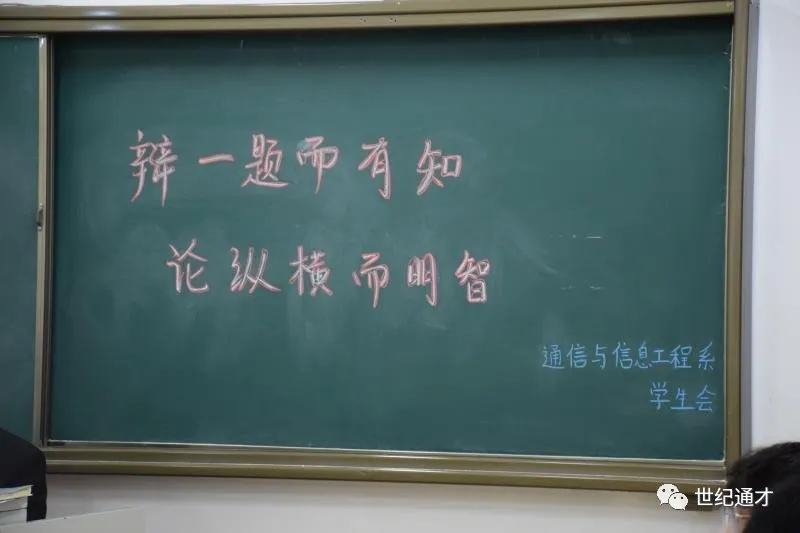 辩一题而有知
论纵横而明智
通信与信息工程系
学生会
世纪通才